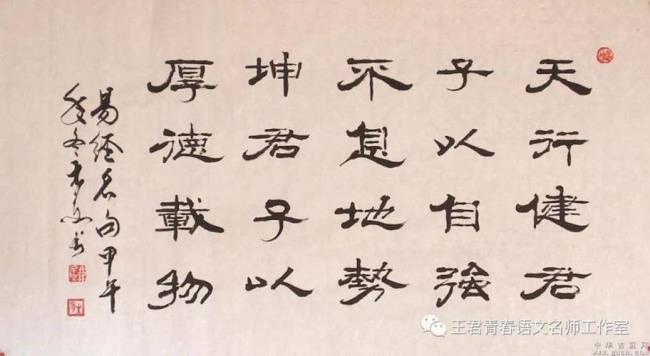 天行健君
子以自強
不息地勢
坤君子以
厚德載物
易經名句甲午
冬
王君青春语文名师工作室